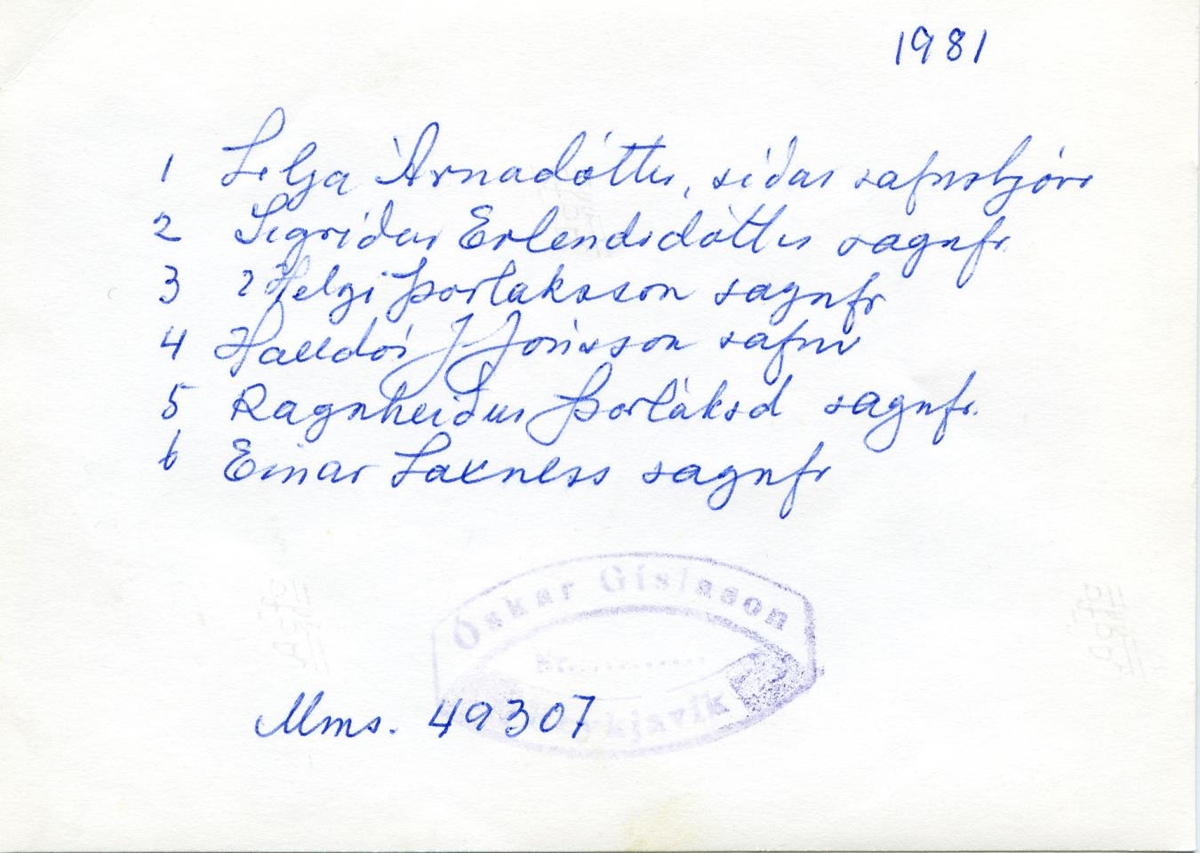 1981
1 Lilja Árnadóttir, síðar safnstjóri
2 Sigríður Erlendsdóttir sagnfr.
3 ? Helgi Þorláksson sagnfr
4 Halldór J Jónsson safnv
5 Ragnheiður Þorláksd sagnfr.
6 Einar Laxness sagnfr
Óskar Gíslason
Nr.
Reykjavík
Mms. 49307